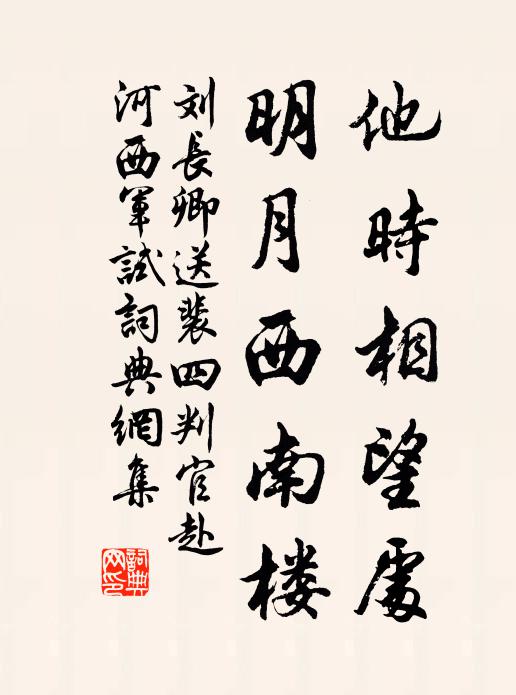 他時相望處
明月西南楼
刘長卿送裴四判官赴
河西軍試詞典網集
詞典
网印